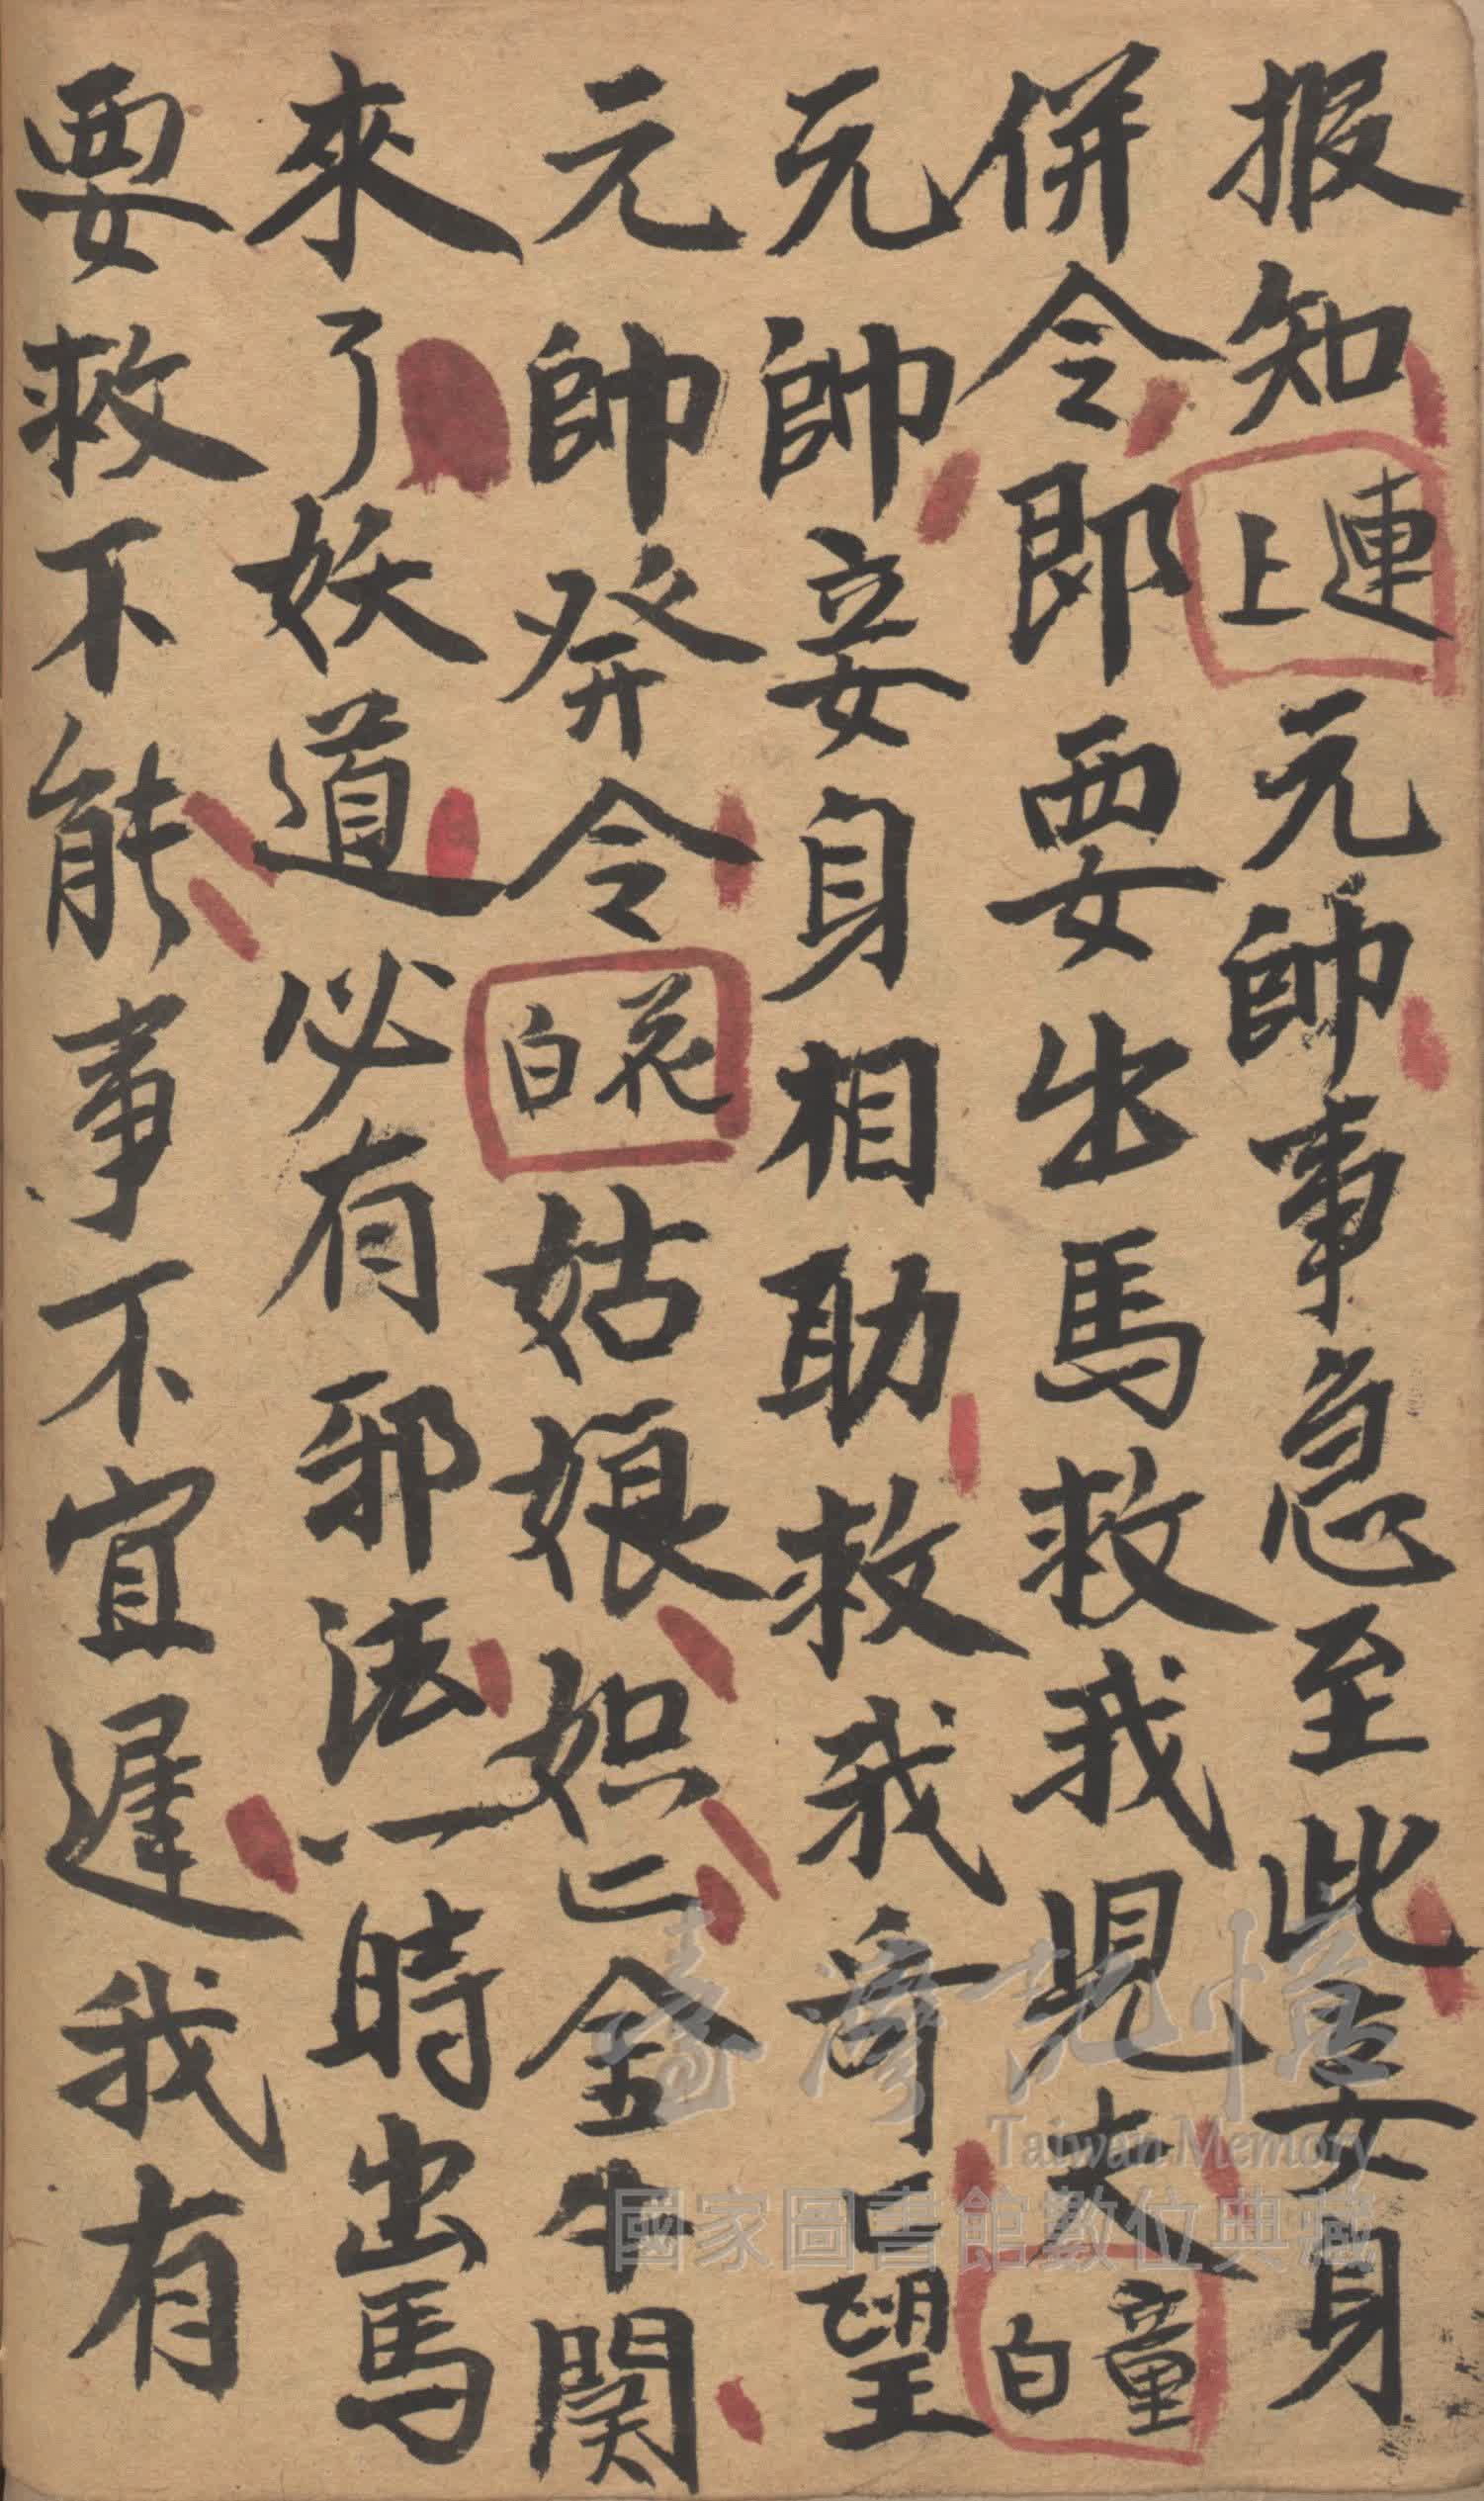 报知連上元帥事急至此妾身
併令即要出馬救我児夫童白
元帥妾身相助救我哥亡望
元帥發令花白姑娘娰亡金牛関
來了妖道必有邪法一時出馬
要救不能事不宜遲我有
臺灣記憶
Taiwan Memory
國家圖書館數位典藏